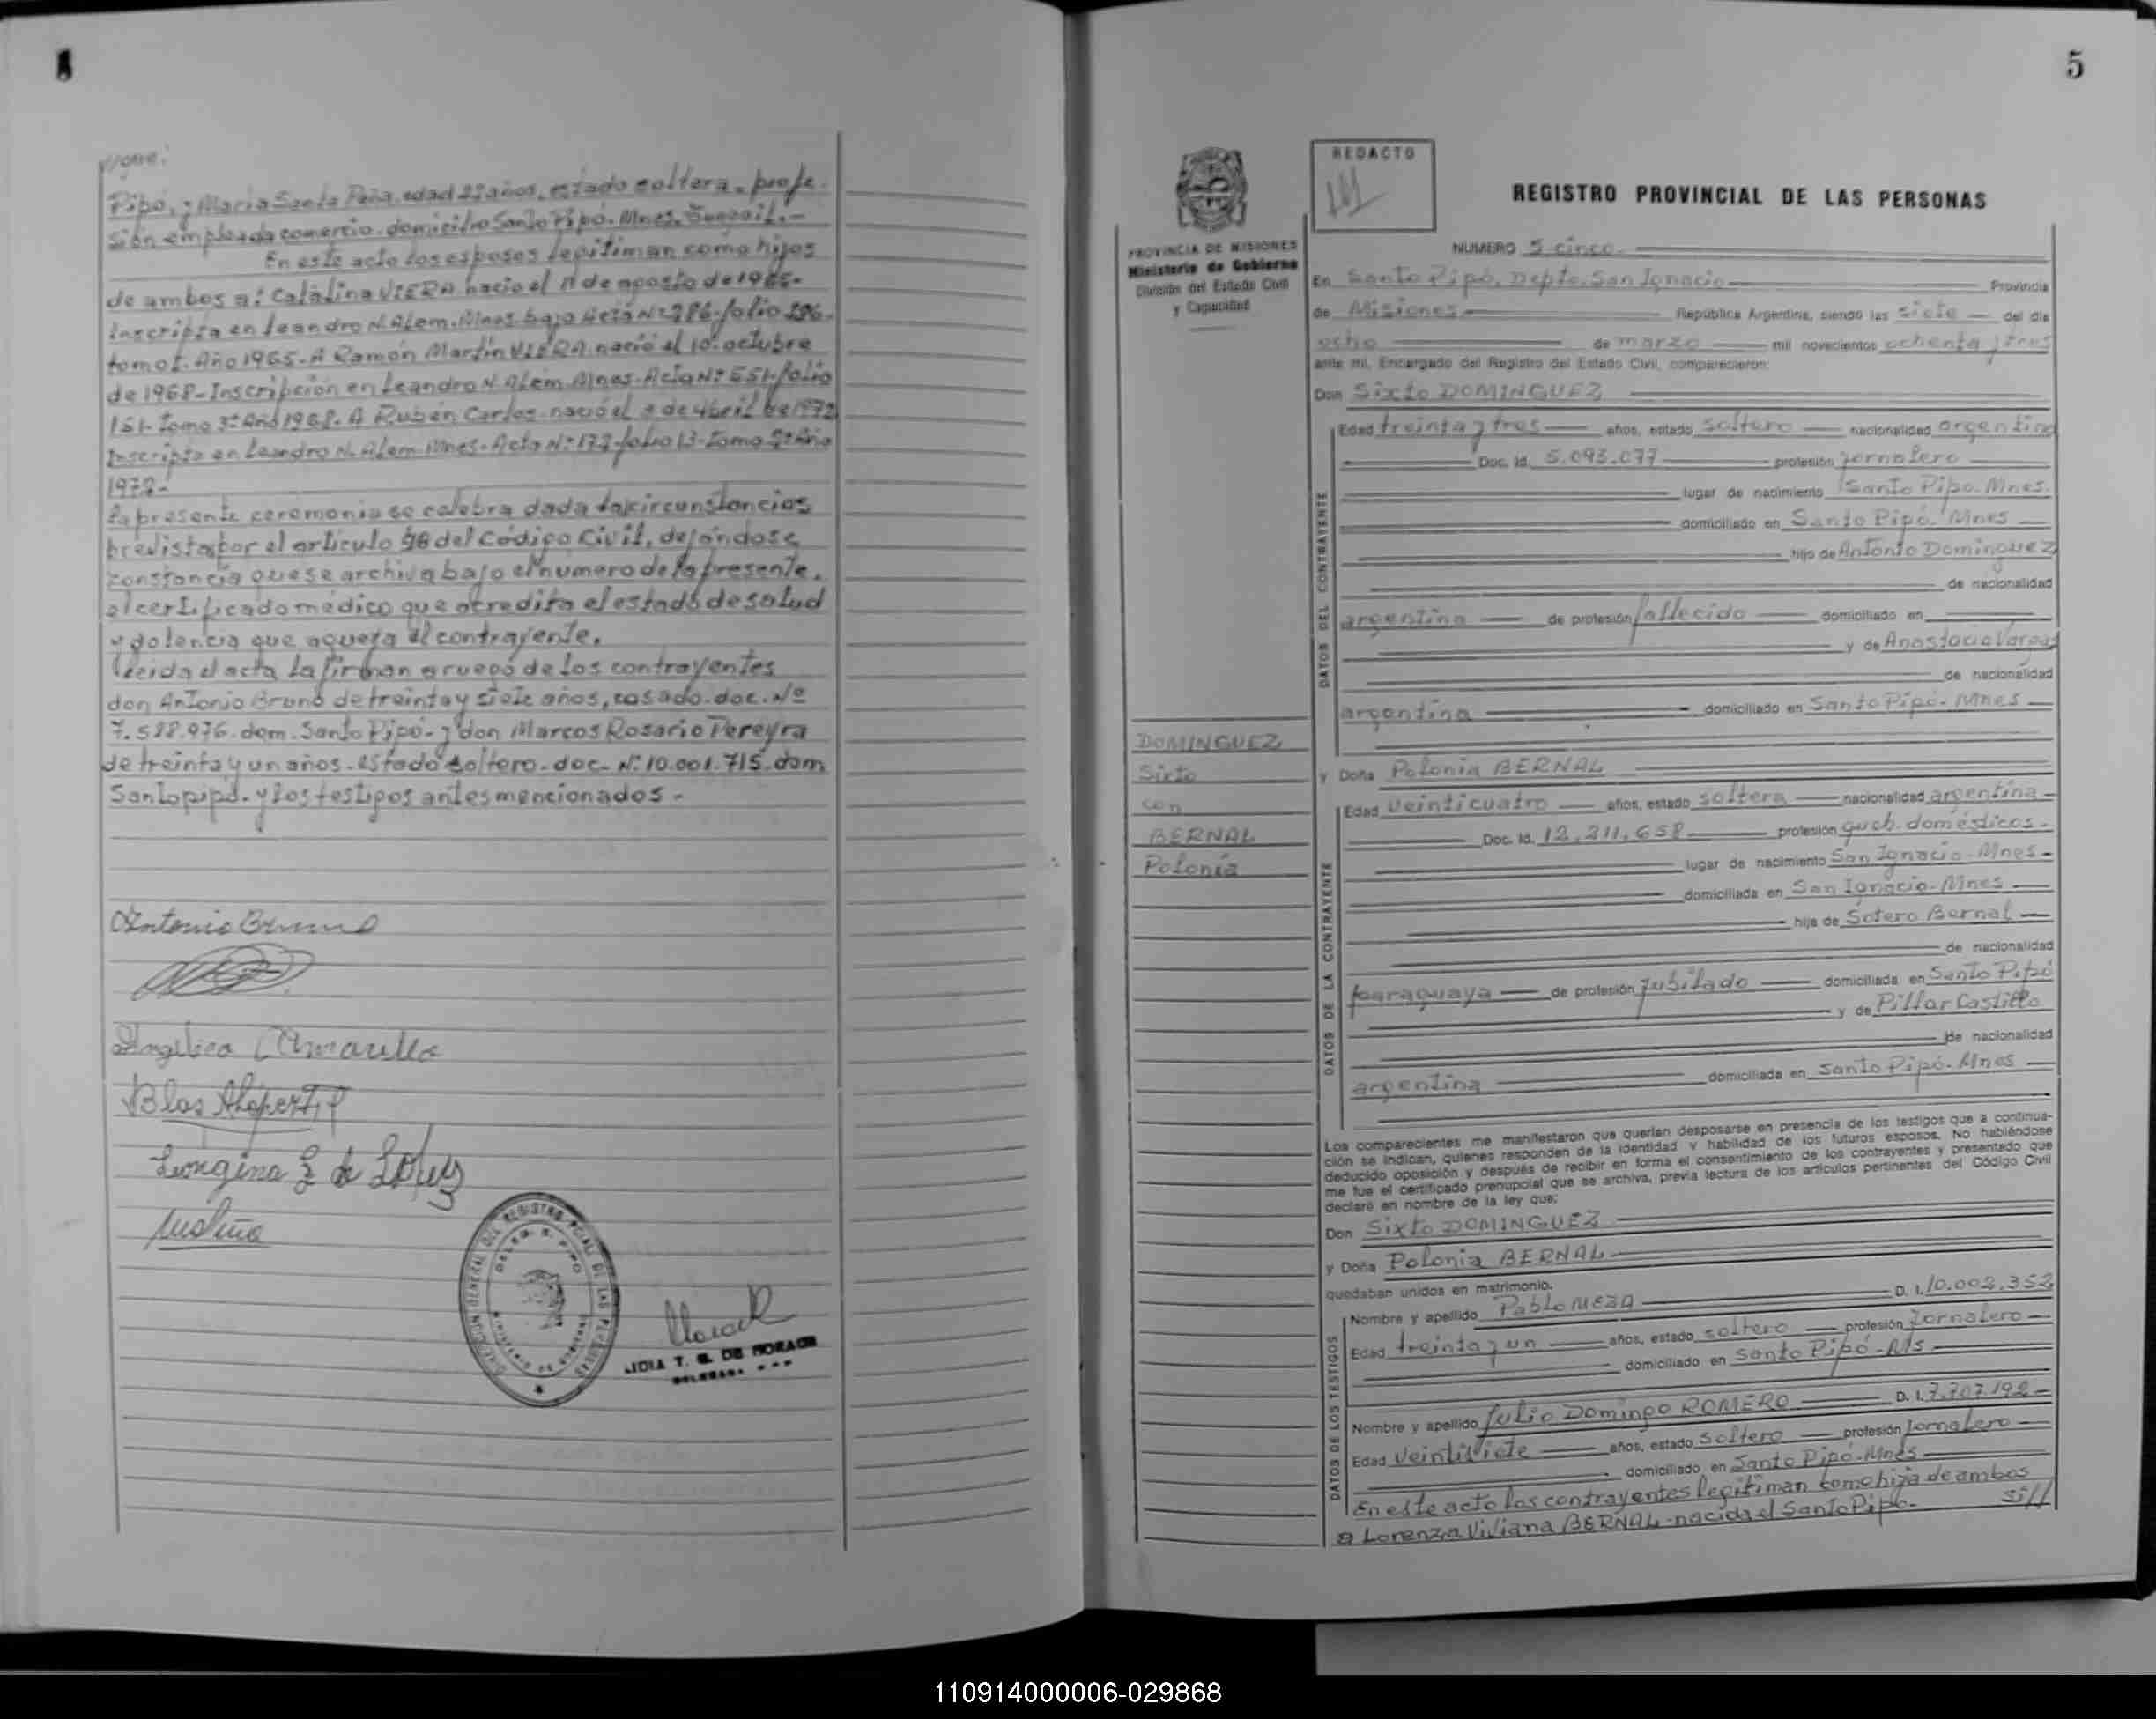 sigue:
Pipó, y María Santa Peña, edad 22 años, estado soltera, profe-
sión empleada comercio, domicilio Santo Pipó. Mnes.
En este acto los esposos legitiman como hijos
de ambos a: Catalina VIERA nacio el 11 de agosto de 1965-
Inscripta en Leandro N. Alem. Mnes bajo Acta Nº 286-folio 286-
tomo I. Año 1965-A Ramón Martín VIERA nació el 10-octubre
de 1968-Inscripción en Leandro N. Alem. Mnes-Acta Nº 551-folio
151-Tomo 3º Año 1968-A Rubén Carlos-nació el 3 de Abril de 1972
Inscripto en Leandro N. Alem Mnes-Acta Nº 172-folio 13-Tomo 2º Año
1972-
La presente ceremonia se celebra dada las circunstancias
previstas por el artículo 48 del Código Civil, dejándose
constancia que se archiva bajo el número de la presente,
el certificado médico que acredita el estado de salud
y dolencia que aqueja al contrayente.
Leida el acta la firman a ruego de los contrayentes
don Antonio Bruno de treinta y siete años, casado. doc. Nº
7.588.976. dom. Santo Pipó- y don Marcos Rosario Pereyra
de treinta y un años-estado soltero-doc-Nº 10.001.715. dom
Santo pipó-y los testigos antes mencionados-
Antonio Bruno
Angelica Amarilla
Blas
Longina de Lopez
DIRECCION GENERAL DEL REGISTRO PCIAL DE LAS PERSONAS
LIDIA T. G. DE MORACE
DELEGADA
5
REDACTO
REGISTRO PROVINCIAL DE LAS PERSONAS
PROVINCIA DE MISIONES
Ministerio de Gobierno
División del Estado Civil
y Capacidad
NUMERO 5 cinco
En Santo Pipó, Depto. San Ignacio Provincia
de Misiones República Argentina, siendo las siete del día
ocho de marzo mil novecientos ochenta y tres
ante mi, Encargado del Registro del Estado Civil, comparecieron:
Don Sixto DOMINGUEZ
DATOS DEL CONTRAYENTE
Edad treinta y tres años, estado soltero nacionalidad argentina
Doc. Id. 5.093.077 profesión jornalero
lugar de nacimiento Santo Pipo. Mnes.
domiciliado en Santo Pipó. Mnes
hijo de Antonio Dominguez
de nacionalidad
argentina de profesión fallecido domiciliado en
y de Anastacia Vargas
de nacionalidad
argentina domiciliado en Santo Pipó-Mnes
DOMINGUEZ
Sixto
con
BERNAL
Polonia
y Doña Polonia BERNAL
DATOS DE LA CONTRAYENTE
Edad veinticuatro años, estado soltera nacionalidad argentina-
Doc. Id. 12.211.658 profesión queh. domésticos-
lugar de nacimiento San Ignacio-Mnes-
domiciliada en San Ignacio-Mnes
hija de Sotero Bernal
de nacionalidad
paraguaya de profesión Jubilado domiciliada en Santo Pipó
y de Pillar Castillo
de nacionalidad
argentina domiciliada en Santo Pipó-Mnes
Los comparecientes me manifestaron que querían desposarse en presencia de los testigos que a continua-
ción se indican, quienes responden de la identidad y habilidad de los futuros esposos. No habiéndose
deducido oposición y después de recibir en forma el consentimiento de los contrayentes y presentado que
me fue el certificado prenupcial que se archiva, previa lectura de los artículos pertinentes del Código Civil
declaré en nombre de la ley que:
Don Sixto DOMINGUEZ
y Doña Polonia BERNAL
quedaban unidos en matrimonio.
DATOS DE LOS TESTIGOS
Nombre y apellido Pablo MEZA D. I. 10.002.352
Edad treinta y un años, estado soltero profesión jornalero
domiciliado en Santo Pipó-Ms
Nombre y apellido Julio Domingo ROMERO D. I. 7.707.192
Edad veintisiete años, estado soltero profesión jornalero
domiciliado en Santo Pipó-Mnes
En este acto los contrayentes legitiman como hija de ambos
a Lorenza Viviana BERNAL-nacida el Santo Pipó-
110914000006-029868